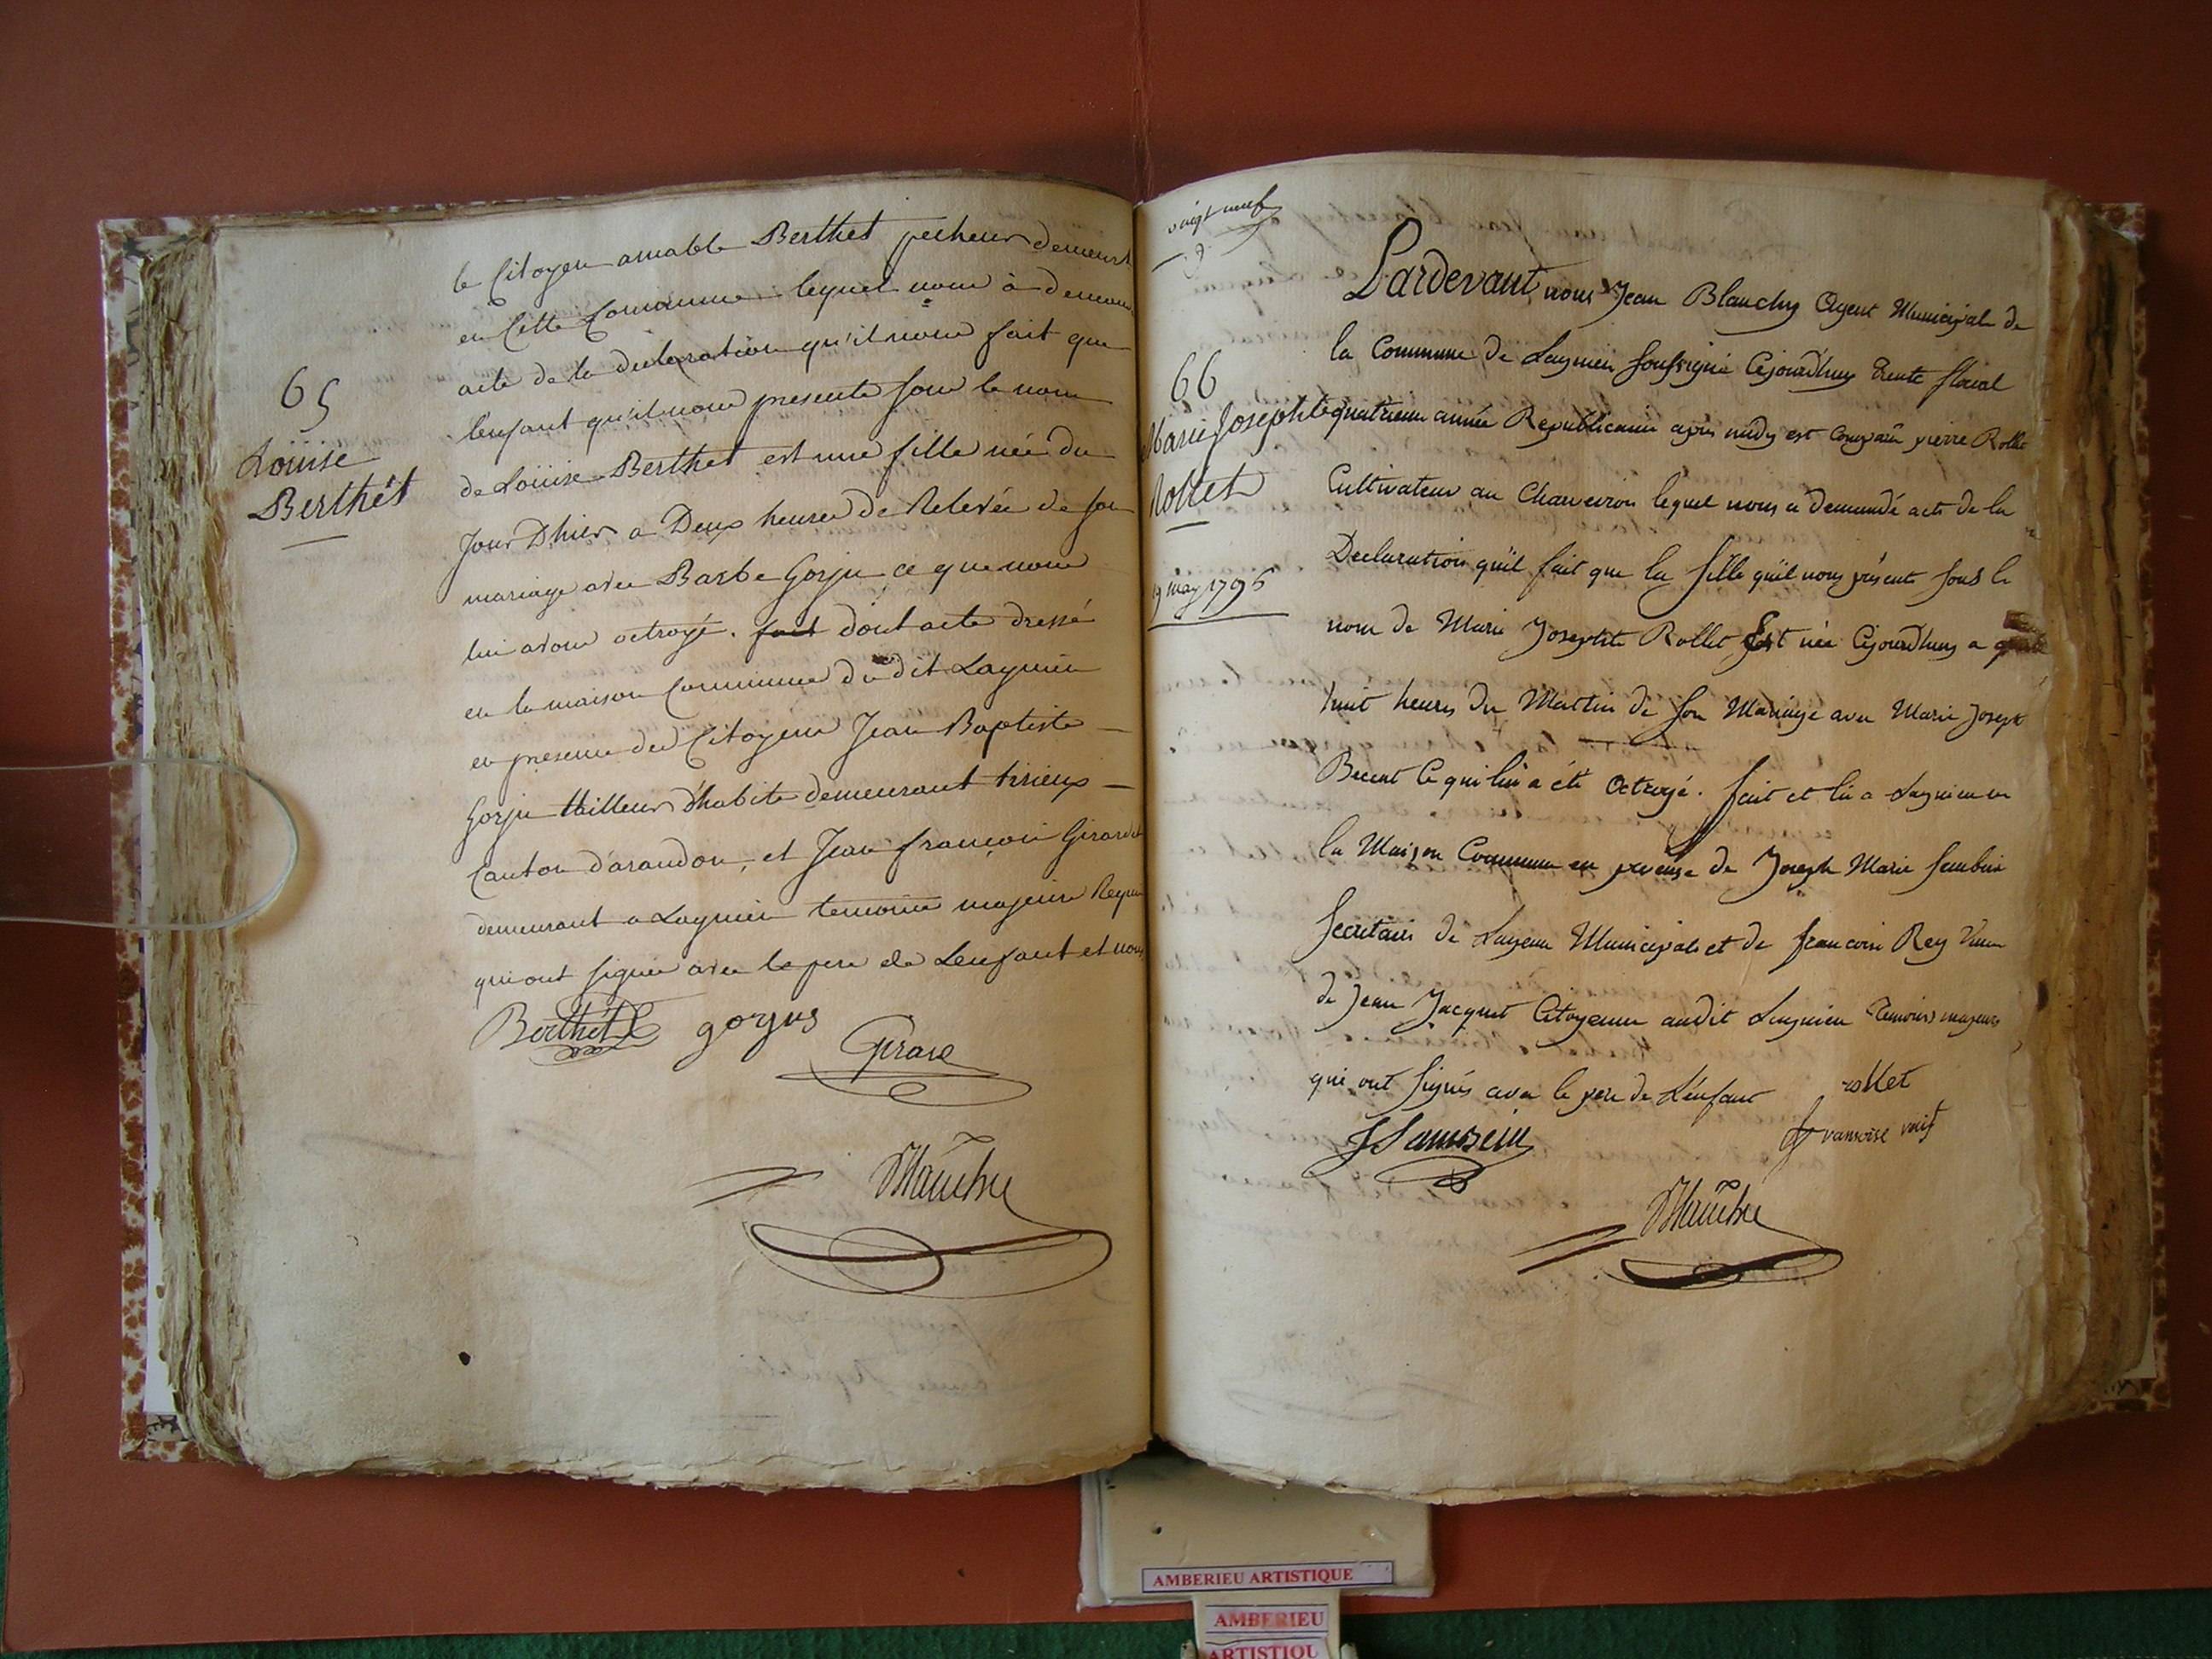 65
Loüise
Berthét
le Citoyen amable Berthet pecheur demeurt
en Cette Commune lequel nous à demandé
acte de la declaration qu'il nous fait que
l'enfant qu'il nous presente sous le nom
de Loüise Berthet est une fille née du
Jour Dhier a Deux heures de Relevée de son
mariage avec Barbe Gorju ce que nous
lui avons octroyé. fait dont acte dressé
en la maison Commune du dit Lagnieu
en presence des Citoyens Jean Baptiste
Gorju tailleur d'habits demeurant
Canton d'arandon, et Jean françois Girardet
demeurant a Lagnieu temoins majeurs Requis
qui ont signés avec le pere de Lenfant et nous
Berthet gorjus
Girard
Blanchy
vingt neuf
66
Marie Josephte
Rollet
19 may 1796
Pardevant nous Jean Blanchy Agent Municipale de
la Commune de Lagnieu soussigné Cejourdhuy trente floreal
quatrieme année Republicaine apres midy est comparu pierre Rollet
Cultivateur au Charveiron lequel nous a demandé acte de la
Declaration qu'il fait que la fille qu'il nous présente sous le
nom de Marie Josephte Rollet Est née Cejourdhuy a
huit heures du Mattin de son Mariage avec Marie Joseph
Ce qui lui a été Octroyé. fait et lû a Lagnieu en
la Maison Commune en presense de Joseph Marie
Secretaire de Lagent Municipale et de francoise Rey Veuve
de Jean Jacquet Citoyenne audit Lagnieu Temoins majeurs
qui ont signés avec le pere de L'enfant rollet
fransoise
Blanchy
AMBERIEU ARTISTIQUE
AMBERIEU
ARTISTIQU